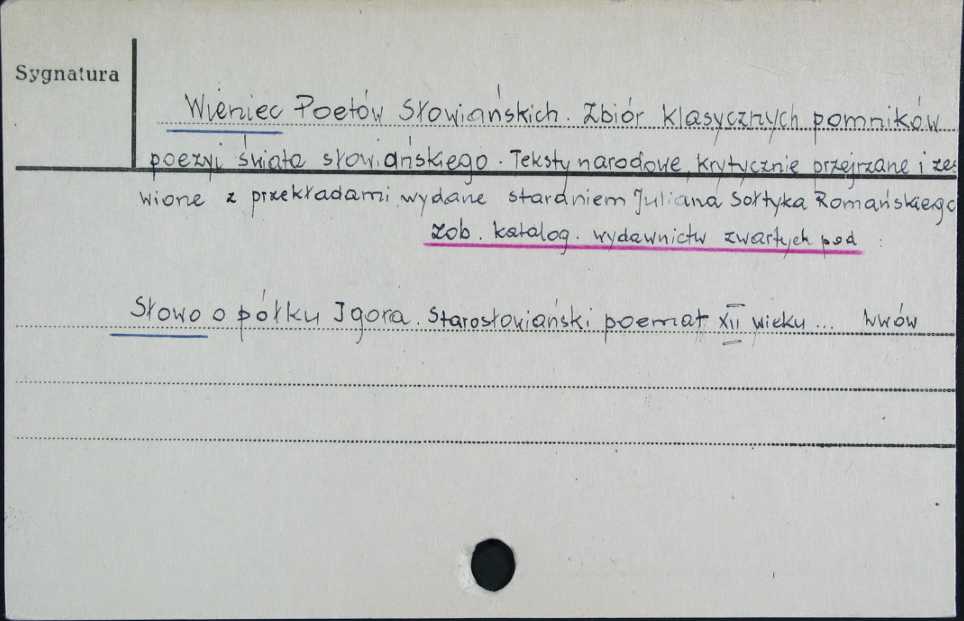 Sygnatura
Wieniec Poetów Słowiańskich. Zbiór klasycznych pomników
poezyi świata słowiańskiego. Teksty narodowe, krytycznie przejrzane i ze-
wione z przekładami, wydane staraniem Juliana Sołtyka Romańskiego
zob. katalog. wydawnictw zwartych pod :
Słowo o półku Igora. Starosłowiański poemat XII wieku... Lwów